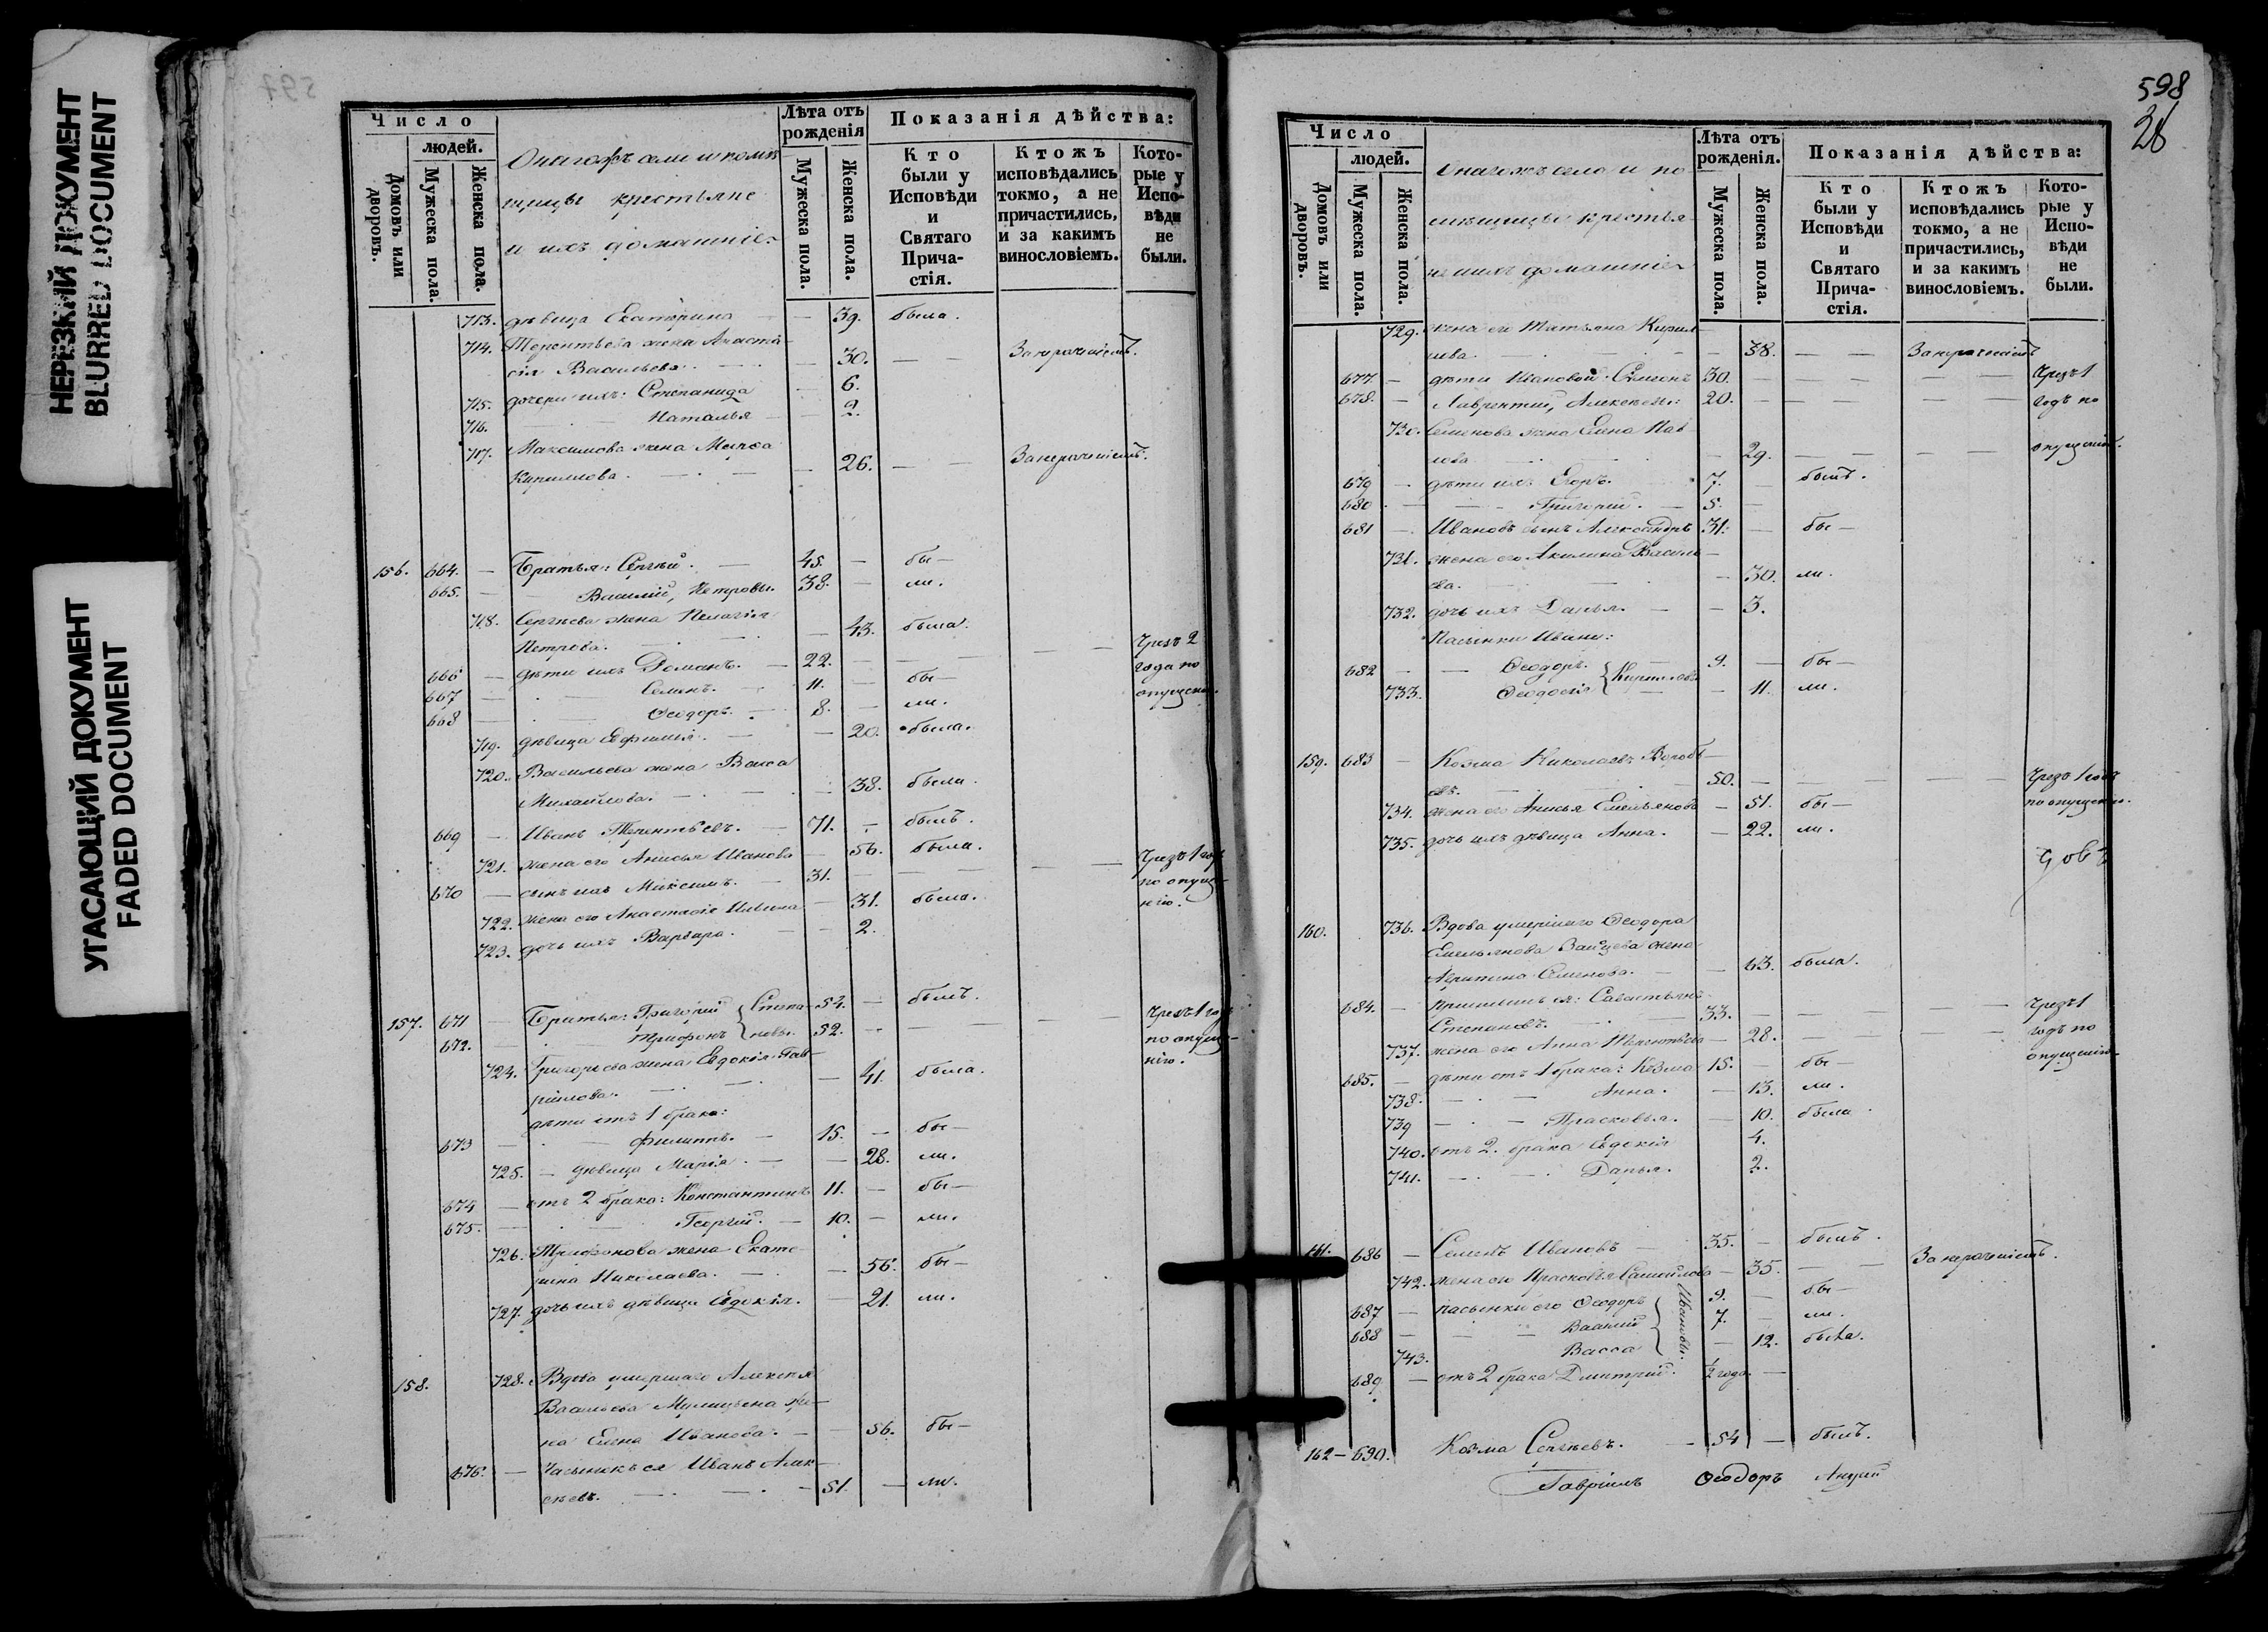 НЕРЕЗКИЙ ДОКУМЕНТ
BLURRED DOCUMENT
УГАСАЮЩИЙ ДОКУМЕНТ
FADED DOCUMENT
597
Число
людей.
Домовъ или дворовъ.
Мужеска пола.
Женска пола.
крестьяне
и ихъ домашніе
Лѣта отъ рожденія
Мужеска пола.
Женска пола.
Показанія дѣйства:
Кто были у Исповѣди и Святаго Прича- стія.
Ктожъ исповѣдались токмо, а не причастились, и за какимъ винословіемъ.
Кото- рые у Испо- вѣди не были.
713. дѣвица Екатерина — 39. была.
714. Терентьева жена Анаста-
сія Васильева. — 30. — —
715. дочери ихъ: Степанида — 6.
716. — Наталья — 2.
717. Максимова жена
Кирилова. — 26. — —
156. 664. — Братья: Сергѣй. — 45. — бы-
665. — Василій, Петровы. 38. — ли.
718. Сергѣева жена Пелагія
Петрова. — 43. была. Чрезъ 2
666 — дѣти ихъ Романъ. — 22. — — года по
667 — Семенъ. — 11. — бы- опущенію.
668 — Ѳеодоръ. — 8. — ли.
719. дѣвица Евфимія. — 20. была.
720. Васильева жена Васса
Михайлова. — 38. была.
669 — Иванъ Терентьевъ. — 71. — былъ.
721. жена его Анисья Иванова — 56. была. Чрезъ 1 годъ
670 — сынъ ихъ Максимъ. — 31. — — по опуще-
722. жена его Анастасія Ильина — 31. была. нію.
723. дочь ихъ Варвара. — 2.
157. 671 — Братья: Григорій Степа- 54. — былъ.
672. Трифонъ новы. 52. — — Чрезъ 1 годъ
724. Григорьева жена Евдокія Гав- по опуще-
рилова. — 41. была. нію.
дѣти отъ 1 брака:
673 — Филиппъ. — 15. — бы-
725. — дѣвица Марія. — 28. ли.
674 — отъ 2 брака: Константинъ 11. — бы-
675. — Георгій. — 10. — ли.
726. Трифонова жена Екате-
рина Николаева. — 56. бы-
727. дочь ихъ дѣвица Евдокія. — 21. ли.
158. 728. Вдова умершаго Алексѣя
Васильева же-
на Елена Иванова. — 56. бы-
676. — Пасынокъ ея Иванъ Алек-
сѣевъ. — 51. — ли.
598
28
Число
людей.
Домовъ или дворовъ.
Мужеска пола.
Женска пола.
крестья-
не и ихъ домашніе
Лѣта отъ рожденія.
Мужеска пола.
Женска пола.
Показанія дѣйства:
Кто были у Исповѣди и Святаго Прича- стія.
Ктожъ исповѣдались токмо, а не причастились, и за какимъ винословіемъ.
Кото- рые у Испо- вѣди не были.
729. жена его Татьяна Кирил-
лова. — 38. — —
677. — дѣти Ивановы: Семенъ 30. — — Чрезъ 1
678. — Лаврентій, Алексѣевы: 20. — — годъ по
730. Семенова жена Елена Пав-
лова — 29. — — опущенію.
679 — дѣти ихъ Егоръ. 7. — былъ.
680 — Григорій. — 5. —
681 — Ивановъ сынъ Александръ 31. — бы-
731. жена его Акилина Василь-
ева. — 30. ли.
732. дочь ихъ Дарья. — 3.
Пасынки Ивану:
682 — Ѳеодоръ Кириловы 9. — бы-
733. Ѳеодосія — 11. ли.
159. 683 — Козма Николаевъ Вороб-
евъ. 50. — — Чрезъ 1 годъ
734. жена его Анисья Емельянова — 51. бы- по опущенію.
735. дочь ихъ дѣвица Анна. — 22. ли.
160. 736. Вдова умершаго Ѳеодора
Емельянова Зайцева жена
Семенова. — 63. была.
684. — Савастьянъ Чрезъ 1
Степановъ. — 33. — — годъ по
737. жена его Анна Терентьева — 28. — — опущенію
685. — дѣти отъ 1 брака: Козма 15. — бы-
738. — Анна. — 13. ли.
739 — Прасковья. — 10. была.
740. отъ 2. брака Евдокія 4.
741. — Дарья. 2.
161. 686 — Семенъ Ивановъ — 35. — былъ.
742. жена его Прасковья Самойлова — 35. — —
687 — пасынки его Ѳеодоръ Ивановы. 9. — бы-
688 — Василій 7. — ли.
743. Васса — 12. была.
689. — отъ 2 брака Дмитрій. ½ года. —
162 — 690. Козма Сергѣевъ. — 54 — былъ.
Гавріилъ Ѳеодоръ